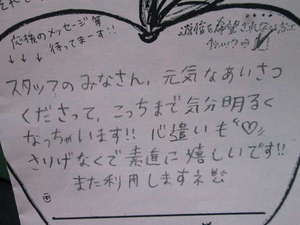 応援のメッセージ等
待ってまーす!!
↓ ↓ ↓ ↓
スタッフのみなさん、元気なあいさつ
くださって、こっちまで気分明るく
なっちゃいます!! 心遣いも♡
さりげなくて素直に嬉しいです!!
また利用しますネ